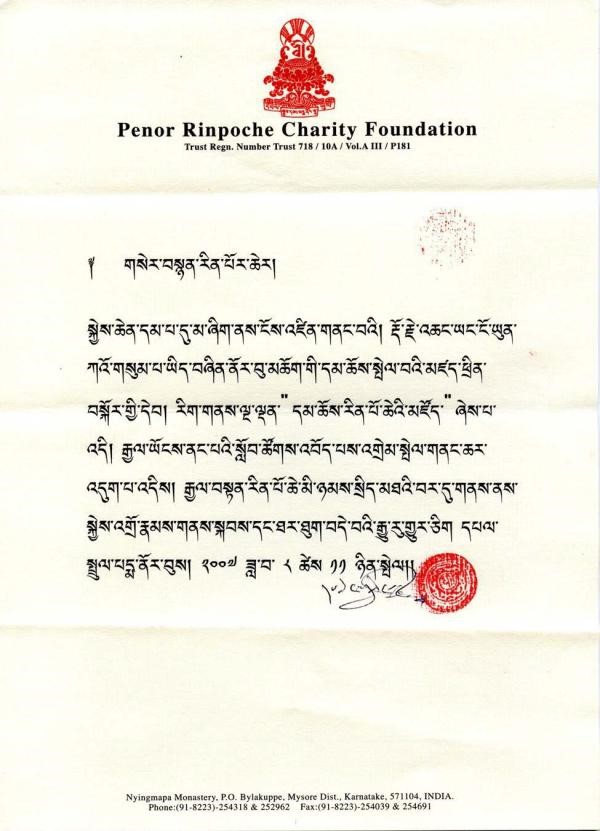 Penor Rinpoche Charity Foundation
Trust Regn. Number Trust 718 / 10A / Vol.A III / P181
༈ གསེར་བསྙན་རིན་པོར་ཆེར།
སྐྱེས་ཆེན་དམ་པ་དུ་མ་ཞིག་ནས་ངོས་འཛིན་གནང་བའི། རྡོ་རྗེ་འཆང་ཡང་ངོ་ཡུན་
ཀའོ་གསུམ་པ་ཡིད་བཞིན་ནོར་བུ་མཆོག་གི་དམ་ཆོས་སྤེལ་བའི་མཛད་ཕྲིན་
བསྐོར་གྱི་དེབ། རིག་གནས་ལྔ་ལྡན་"དམ་ཆོས་རིན་པོ་ཆེའི་མཛོད་" ཞེས་པ་
འདི། རྒྱལ་ཡོངས་ནང་པའི་སློབ་ཚོགས་འབོད་པས་འགྲེམ་སྤེལ་གནང་ཆར་
འདུག་པ་འདིས། རྒྱལ་བསྟན་རིན་པོ་ཆེ་མི་ཉམས་སྲིད་མཐའི་བར་དུ་གནས་ནས་
སྐྱེས་འགྲོ་རྣམས་གནས་སྐབས་དང་ཐར་ཐུག་བདེ་བའི་རྒྱུ་རུ་གྱུར་ཅིག དཔལ་
སྤྲུལ་པདྨ་ནོར་བུས། ༢༠༠༧ ཟླ་བ་ ༨ ཚེས་ ༡༡ ཉིན་སྤེལ།།
Nyingmapa Monastery, P.O. Bylakuppe, Mysore Dist., Karnatake, 571104, INDIA.
Phone:(91-8223)-254318 & 252962 Fax:(91-8223)-254039 & 254691